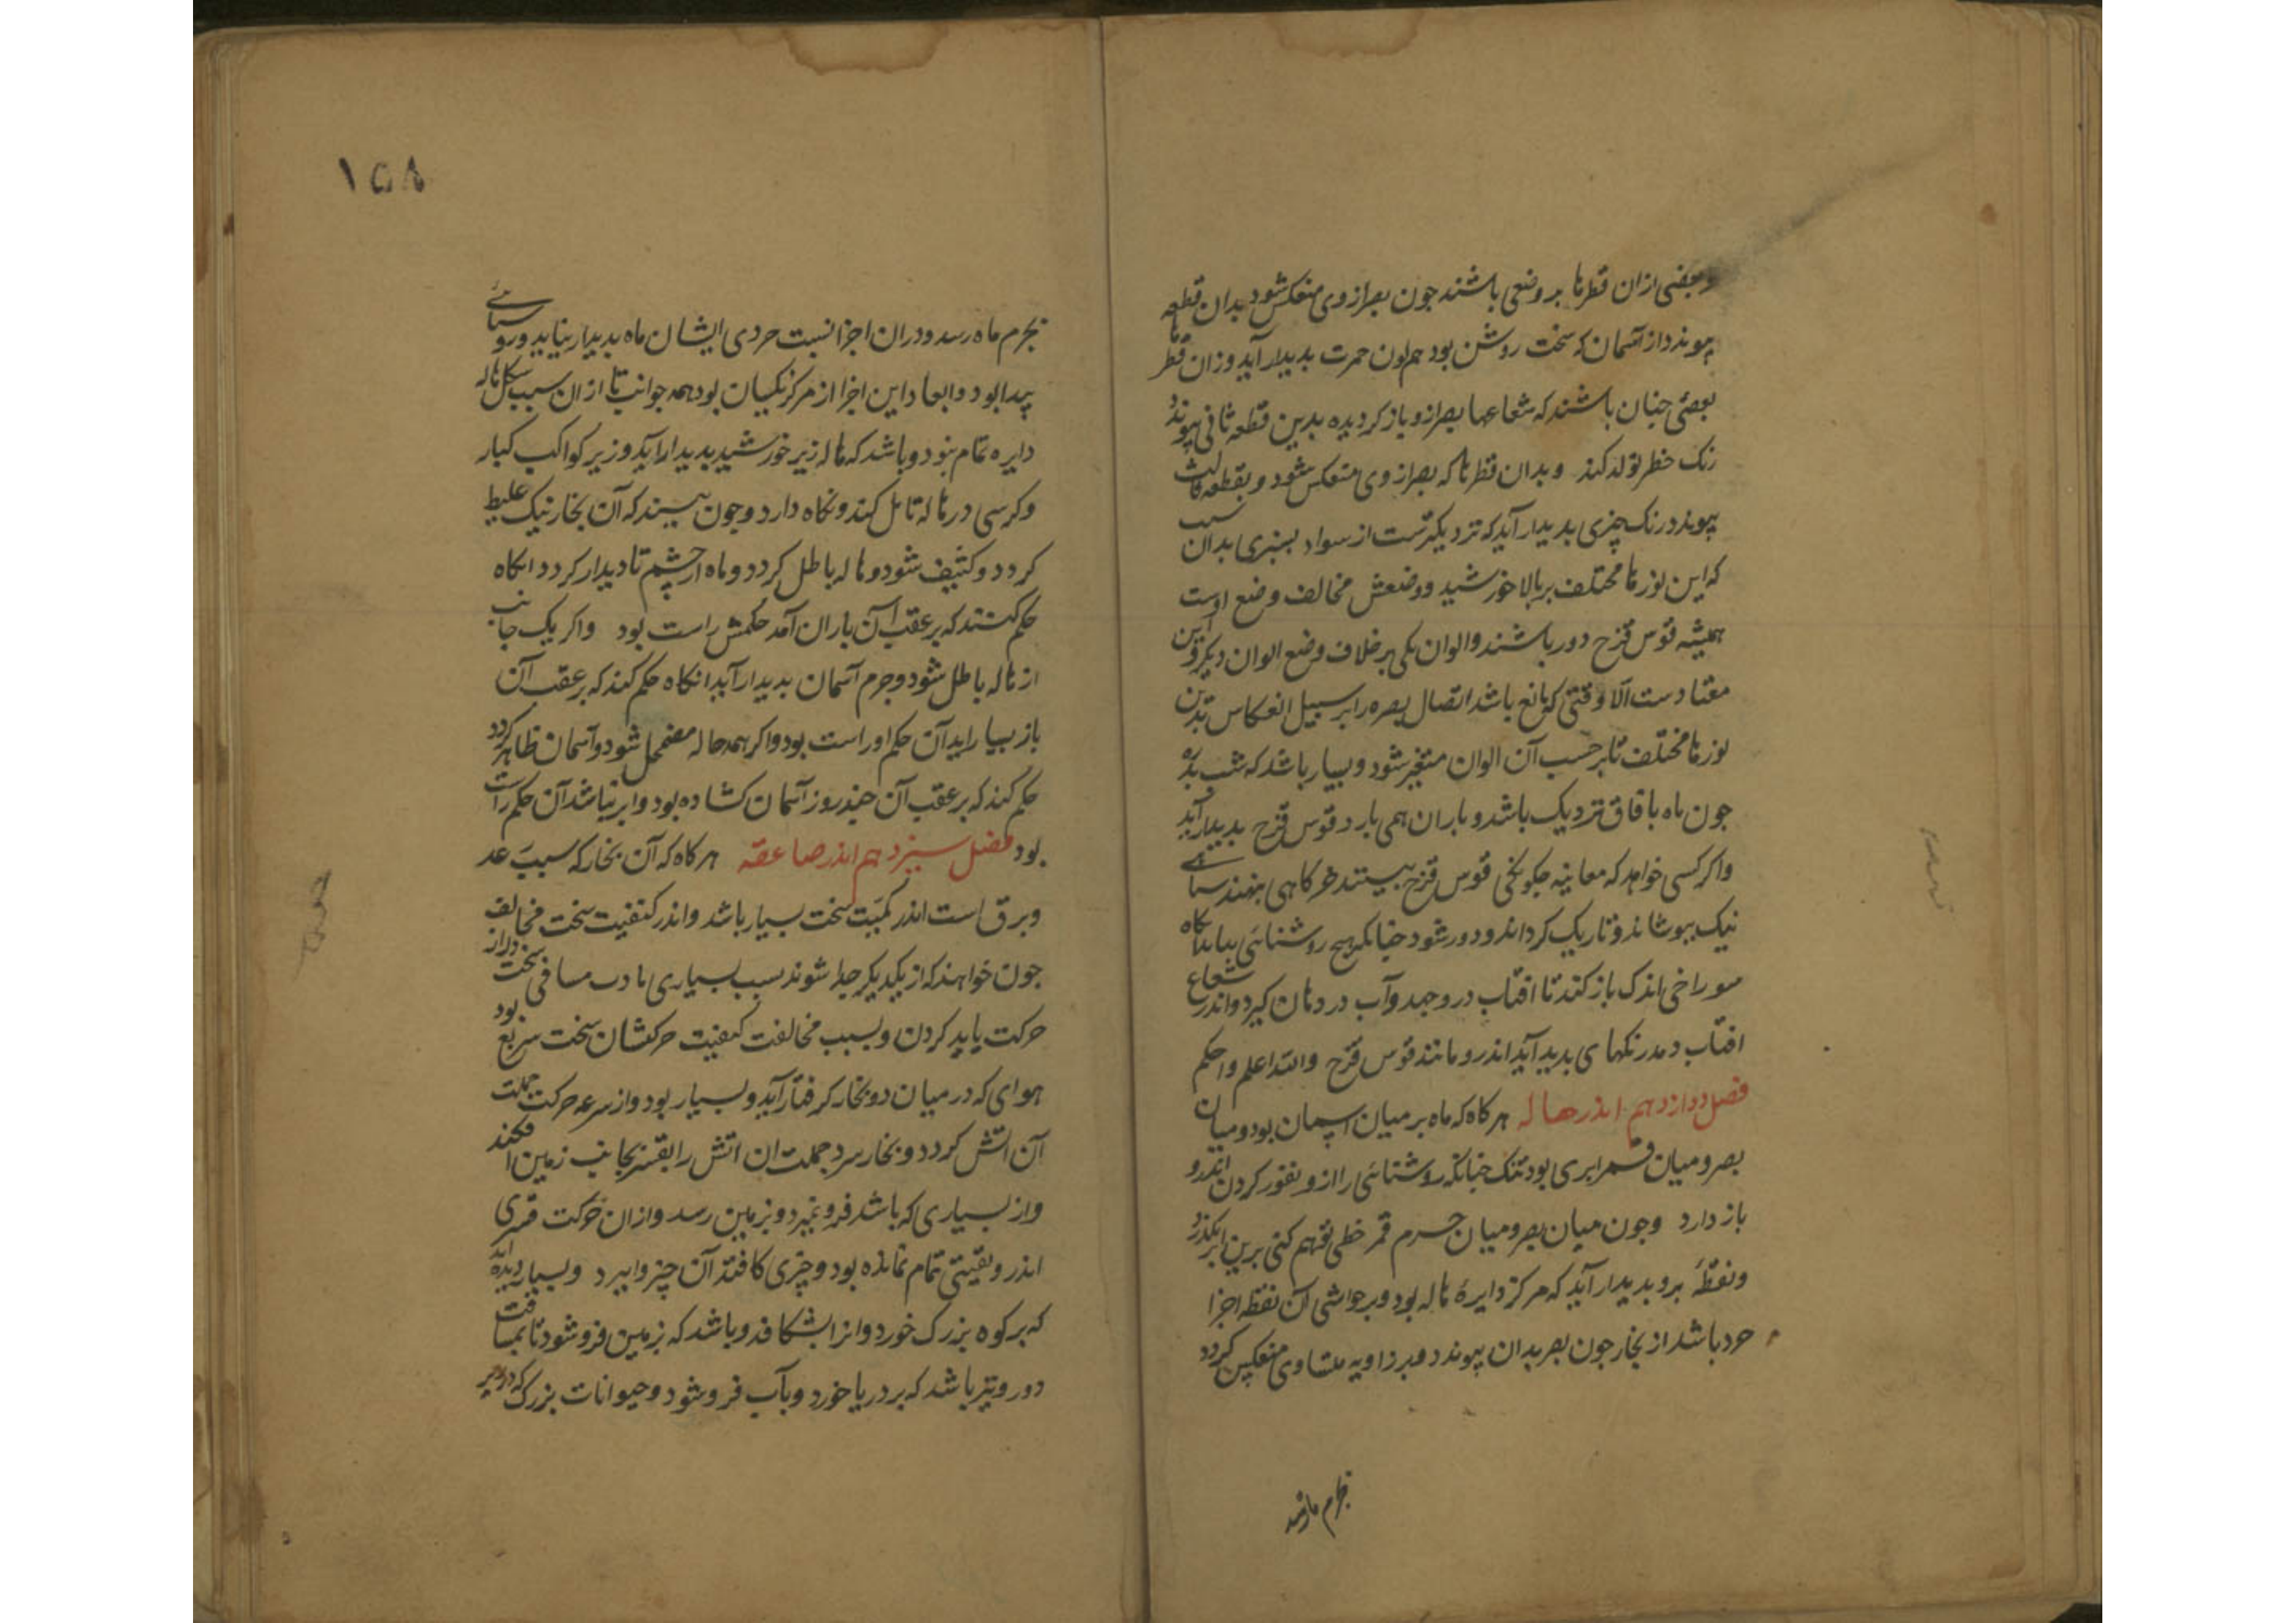 وبعضی ازان قطرها بروضعی باشند جون بصر ازوی منعکس شود بدان قطعه
پیوندد از آسمان که سخت روشن بود هم لون حمرت بدیدار آید وزان قطرها
بعضی جنان باشند که شعاعها بصر ازو باز کردیده بدین قطعه ثانی پیوندد
رنک خطر تولد کند وبدان قطرها که بصر ازوی منعکس شود وبقطعه ثالث
پیوندد رنک چیزی بدیدار آید که نزدیکترست از سواد بسبزی بدان سبب
که این نورها مختلف بر بالا خورشید ووضعش مخالف وضع اوست
همیشه قوس قزح دور باشند والوان یکی برخلاف وضع الوان دیکر واین
معتادست الا وقتی که مانع باشد اتصال بصره را بر سبیل انعکاس بدین
نورها مختلف تا بر حسب آن الوان متغیر شود وبسیار باشد که شب بدره
جون ماه بافاق نزدیک باشد وباران همی بارد قوس قزح بدیدار آید
واکر کسی خواهد که معاینه جکونکی قوس قزح ببیند خرکاهی بنهند
نیک بپوشاند وتاریک کرداند ودور شود جنانک هیچ روشنائی نیاید آنکاه
سوراخی اندک باز کند تا افتاب دروجهد وآب در دهان کیرد واندر شعاع
افتاب دمد رنکهای بدید آید اندرو مانند قوس قزح والله اعلم واحکم
فصل دوازدهم اندر هاله هرکاه که ماه بر میان اسمان بود ومیان
بصر ومیان قمر ابری بود تنک جنانکه روشنائی را ازو نفوذ کردن اندرو
باز دارد وجون میان بصر ومیان جرم قمر خطی تفهم کنی برین ابر بکذرد
ونقطهٔ برو بدیدار آید که مرکز دایرهٔ هاله بود وبر حواشی آن نقطه اجزا
خرد باشد از بخار جون بصر بدان پیوندد وبر زاویه متساوی منعکس کردد
بجرم ماه رسد
١٥٨
بجرم ماه رسد ودران اجزا نسبت خردی ایشان ماه بدیدار نیاید وروشنائی
پیدا بود وابعاد این اجزا از مرکز یکسان بود همه جوانب تا از ان سبب شکل هاله
دایره تمام بود وباشد که هاله زیر خورشید بدیدار آید وزیر کواکب کبار
وکر کسی در هاله تامل کند ونکاه دارد وجون ببیند که آن بخار نیک غلیظ
کردد وکثیف شود وهاله باطل کردد وماه از چشم نادیدار کردد انکاه
حکم کنند که بر عقب آن باران آمد حکمش راست بود واکر یک جانب
از هاله باطل شود وجرم آسمان بدیدار آید انکاه حکم کند که بر عقب آن
باز بسیار آید آن حکم او راست بود واکر همه هاله مضمحل شود وآسمان ظاهر کردد
حکم کند که بر عقب آن چند روز آسمان کشاده بود وابر نباشد آن حکم راست
بود فصل سیزدهم اندر صاعقه هرکاه که آن بخار که سبب رعد
وبرق است اندر کمیت سخت بسیار باشد واندر کیفیت سخت مخالف
جون خواهند که از یکدیکر جدا شوند سبب بسیاری مادت مسافی سخت دراز
حرکت باید کردن وبسبب مخالفت کیفیت حرکتشان سخت سریع بود
هوای که در میان دو بخار کرفتار آید وبسیار بود واز سرعه حرکت جملت
آن اتش کردد وبخار سرد جملت ان اتش را بقسر بجانب زمین افکند
واز بسیاری که باشد فرو نمیرد وبزمین رسد وازان حرکت قسری
اندرو بقیتی تمام مانده بود وچیزی کافتد آن چیز وا برد وبسیار دیده اند
که بر کوه بزرک خورد وانرا بشکافد وباشد که بزمین فرو شود تا بمسافت
دور ونیز باشد که بر دریا خورد وبآب فرو شود وحیوانات بزرک که در زیر